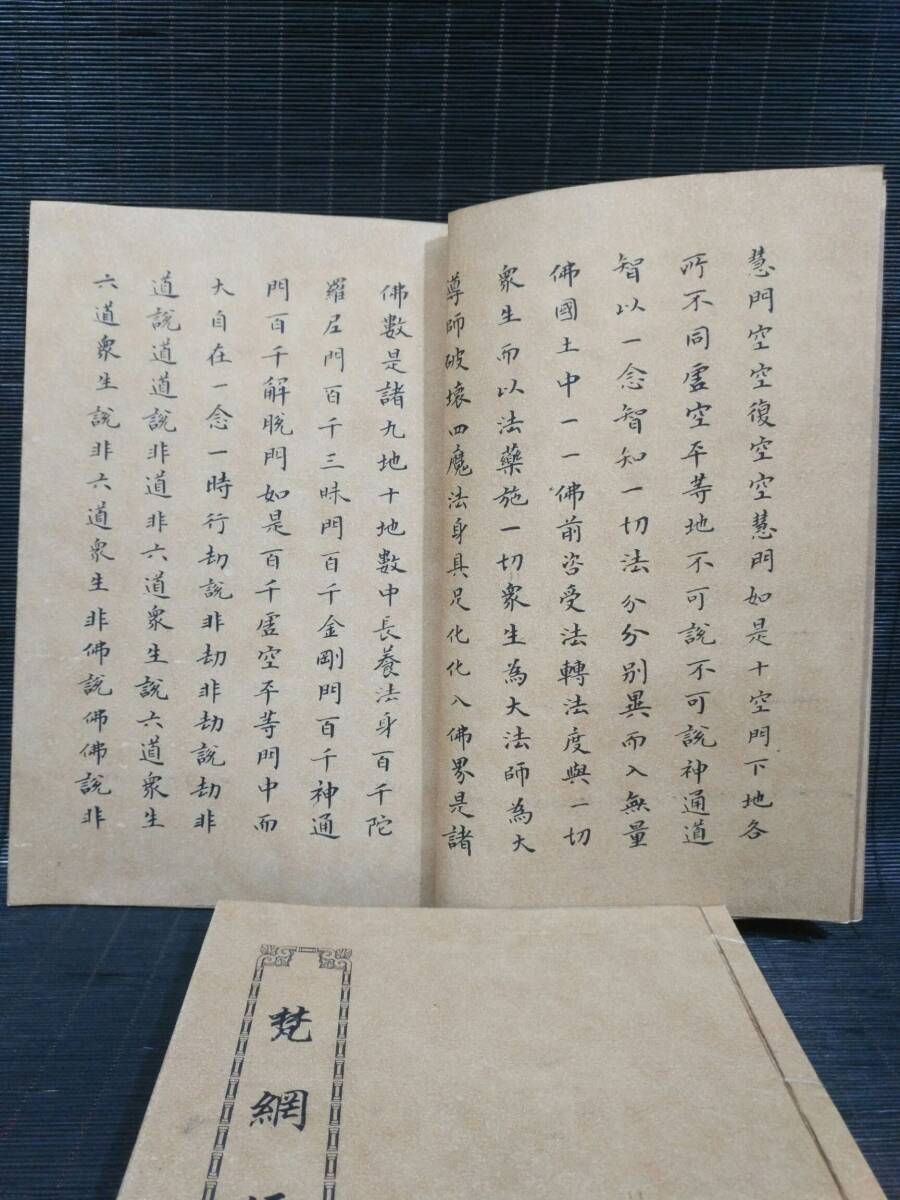 慧門空空復空空慧門如是十空門下地各
所不同虛空平等地不可說不可說神通道
智以一念智知一切法分分別異而入無量
佛國土中一一佛前咨受法轉法度與一切
衆生而以法藥施一切衆生為大法師為大
導師破壞四魔法身具足化化入佛界是諸
佛數是諸九地十地數中長養法身百千陀
羅尼門百千三昧門百千金剛門百千神通
門百千解脫門如是百千虛空平等門中而
大自在一念一時行劫說非劫非劫說劫非
道說道道說非道非六道衆生說六道衆生
六道衆生說非六道衆生非佛說佛佛說非
梵網